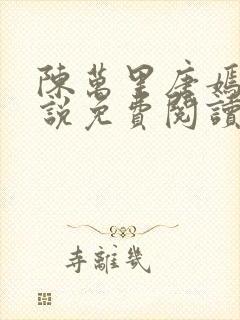 陳萬里唐嫣
說免費閱讀
寺離幾